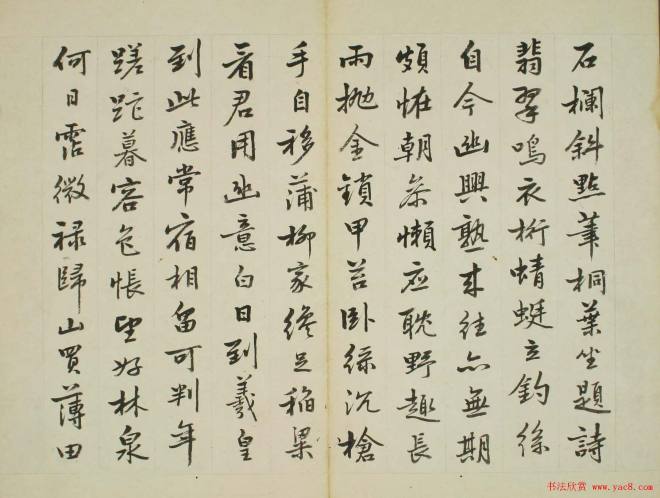 石欄斜點筆桐葉坐題詩
翡翠鳴衣桁蜻蜓立釣絲
自今幽興熟來往亦無期
頗恠朝參懶應耽野趣長
雨拋金鎖甲苔臥綠沉槍
手自移蒲柳家纔足稻粱
看君用幽意白日到羲皇
到此應常宿相留可判年
蹉跎暮容色悵望好林泉
何日霑微祿歸山買薄田
书法欣赏
www.yac8.com